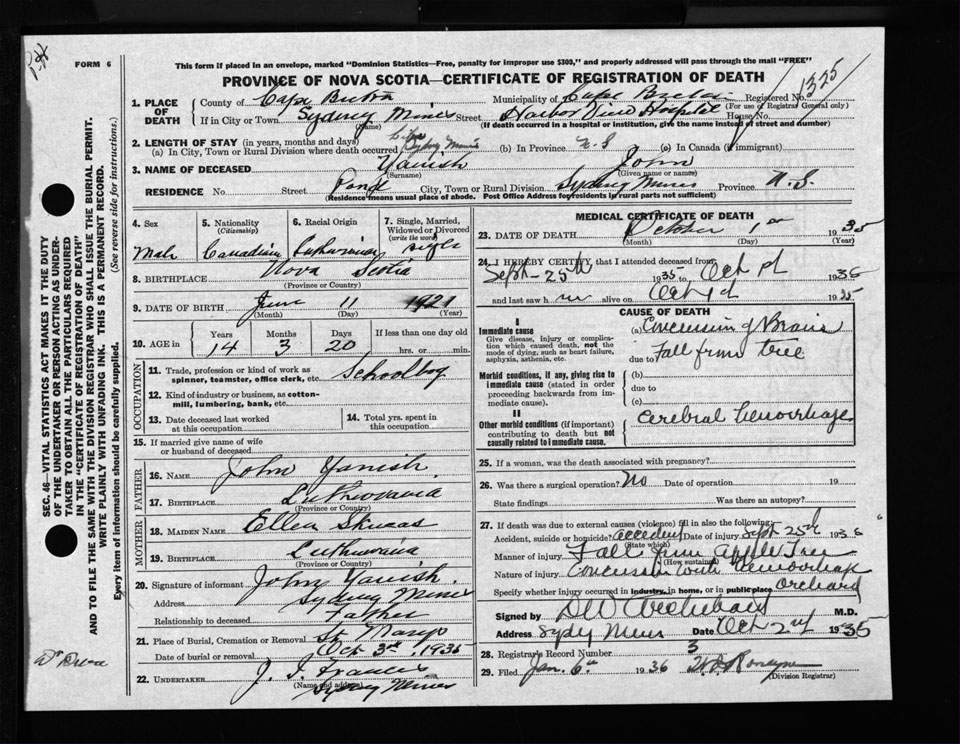 P.H.
FORM 6
This form if placed in an envelope, marked "Dominion Statistics—Free, penalty for improper use $300," and properly addressed will pass through the mail "FREE"
PROVINCE OF NOVA SCOTIA—CERTIFICATE OF REGISTRATION OF DEATH
1325
1. PLACE OF DEATH
County of Cape Breton Municipality of Cape Breton Registered No. (For use of Registrar General only)
If in City or Town Sydney Mines Street Harbor View Hospital House No.
(Name) (If death occurred in a hospital or institution, give the name instead of street and number)
2. LENGTH OF STAY (in years, months and days)
(a) In City, Town or Rural Division where death occurred Sydney Mines (b) In Province N.S (c) In Canada (if immigrant)
3. NAME OF DECEASED Yanish John
(Surname) (Given name or names)
RESIDENCE No. Street Pond City, Town or Rural Division Sydney Mines Province N.S.
(Residence means usual place of abode. Post Office Address for residents in rural parts not sufficient)
4. Sex Male
5. Nationality (Citizenship) Canadian
6. Racial Origin
7. Single, Married, Widowed or Divorced (write the word) single
8. BIRTHPLACE Nova Scotia
(Province or Country)
9. DATE OF BIRTH June 11 1921
(Month) (Day) (Year)
10. AGE in Years Months Days If less than one day old
14 3 20 hrs. or min.
OCCUPATION
11. Trade, profession or kind of work as spinner, teamster, office clerk, etc. Schoolboy
12. Kind of industry or business, as cotton-mill, lumbering, bank, etc.
13. Date deceased last worked at this occupation
14. Total yrs. spent in this occupation
15. If married give name of wife or husband of deceased
FATHER
16. NAME John Yanish
17. BIRTHPLACE Luthuvania
MOTHER
18. MAIDEN NAME Ellen
19. BIRTHPLACE Luthuvania
(Province or Country)
20. Signature of informant John Yanish.
Address Sydney Mines
Relationship to deceased Father
21. Place of Burial, Cremation or Removal St Marys
Date of burial or removal Oct 3rd 1935
22. UNDERTAKER J. J.
(Name and address) Sydney Mines
MEDICAL CERTIFICATE OF DEATH
23. DATE OF DEATH October 1st 1935
(Month) (Day) (Year)
24. I HEREBY CERTIFY that I attended deceased from
Sept-25th 1935 to Oct 1st 1935
and last saw h im alive on Oct 1st 1935
CAUSE OF DEATH
I
Immediate cause
Give disease, injury or complication which caused death, not the mode of dying, such as heart failure, asphyxia, asthenia, etc.
(a) Concussion of Brain
due to Fall from tree
Morbid conditions, if any, giving rise to immediate cause (stated in order proceeding backwards from immediate cause).
(b)
due to
(c)
II
Other morbid conditions (if important) contributing to death but not causally related to immediate cause.
Cerebral hemorrhage
25. If a woman, was the death associated with pregnancy?
26. Was there a surgical operation? No Date of operation 19
State findings Was there an autopsy?
27. If death was due to external causes (violence) fill in also the following:
Accident, suicide or homicide? accident Date of injury Sept 25th 1935
(State which)
Manner of injury Fall from Apple Tree
(How sustained)
Nature of injury Concussion with Hemorrhage
Specify whether injury occurred in industry, in home, or in public place Orchard
Signed by M.D.
Address Sydney Mines Date Oct 2nd 1935
28. Registrar's Record Number 3
29. Filed Jan. 6th 1936
(Division Registrar)
SEC. 46—VITAL STATISTICS ACT MAKES IT THE DUTY OF THE UNDERTAKER OR PERSON ACTING AS UNDERTAKER TO OBTAIN ALL THE PARTICULARS REQUIRED IN THE "CERTIFICATE OF REGISTRATION OF DEATH" AND TO FILE THE SAME WITH THE DIVISION REGISTRAR WHO SHALL ISSUE THE BURIAL PERMIT.
WRITE PLAINLY WITH UNFADING INK. THIS IS A PERMANENT RECORD.
Every item of information should be carefully supplied. (See reverse side for instructions.)